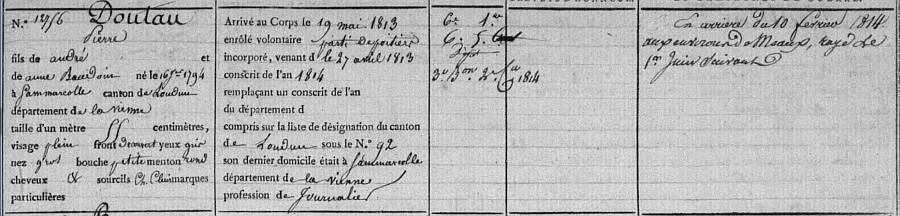 N.° 12756 Doutau
Pierre
fils de andré et
de anne Baudoin né le 16 7bre 1794
à Sammarcolle canton de Loudun
département de la vienne
taille d'un mètre 55 centimètres,
visage plein front decouvert yeux gris
nez gros bouche petite menton rond
cheveux & sourcils Ch. Clair marques
particulières
Arrivé au Corps le 19 mai 1813
enrôlé volontaire parti de poitiers
incorporé, venant d le 27 avril 1813
conscrit de l'an 1814
remplaçant un conscrit de l'an
du département d
compris sur la liste de désignation du canton
de Loudun sous le N.° 92
son dernier domicile était à Sammarcolle
département de la vienne
profession de Journalier
1.er
5.
3.e B.on 2.e C.ie 1814
En arriere du 10 février 1814
aux environs de Meaux, rayé le
1.er Juin suivant